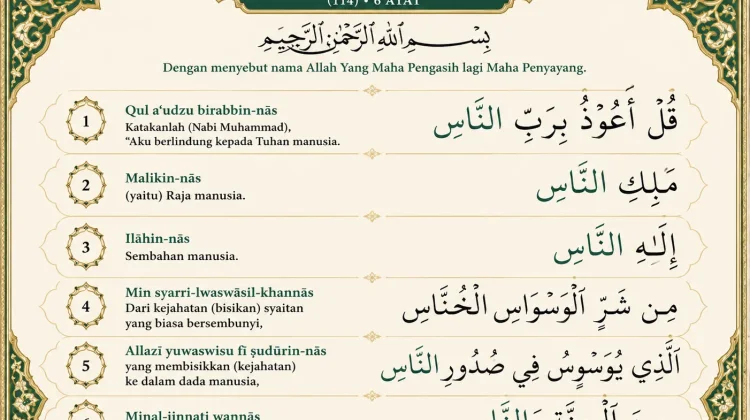 (114) • 6 AYAT
بِسْمِ اللهِ الرَّحْمٰنِ الرَّحِيْمِ
Dengan menyebut nama Allah Yang Maha Pengasih lagi Maha Penyayang.
1
Qul a‘udzu birabbin-nās
Katakanlah (Nabi Muhammad),
“Aku berlindung kepada Tuhan manusia.
قُلْ أَعُوْذُ بِرَبِّ النَّاسِ
2
Malikin-nās
(yaitu) Raja manusia.
مَلِكِ النَّاسِ
3
Ilāhin-nās
Sembahan manusia.
إِلَـٰهِ النَّاسِ
4
Min syarri-lwaswāsil-khannās
Dari kejahatan (bisikan) syaitan
yang biasa bersembunyi,
مِن شَرِّ الْوَسْوَاسِ الْخُنَّاسِ
5
Allazī yuwaswisu fī ṣudūrin-nās
yang membisikkan (kejahatan)
ke dalam dada manusia,
الَّذِي يُوَسْوِسُ فِي صُدُورِ النَّاسِ
Minal-jinnati wannās